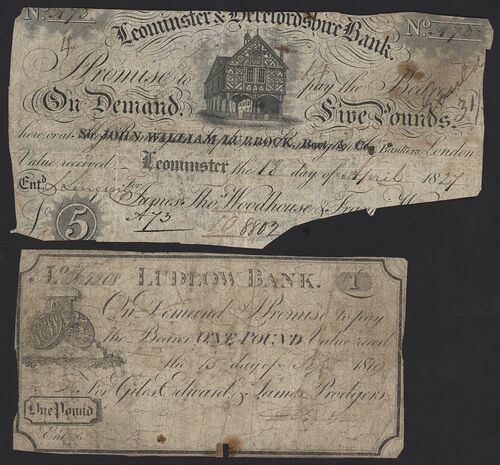 No. 173
Leominster & Herefordshire Bank.
No. 173
I Promise to pay the Bearer
On Demand. Five Pounds.
here or at Sir JOHN WILLIAM LUBBOCK, Bart. & Co. Bankers, London
Value received Leominster the 18 day of April 1827
Entd. For
James Thos. Woodhouse &
£ 5 A 73 8802
No. 1208 LUDLOW BANK. 1
On Demand I Promise to pay
the Bearer ONE POUND Value recd
the 15 day of
For Giles, Edward & James Prodgers
One Pound
Entd.